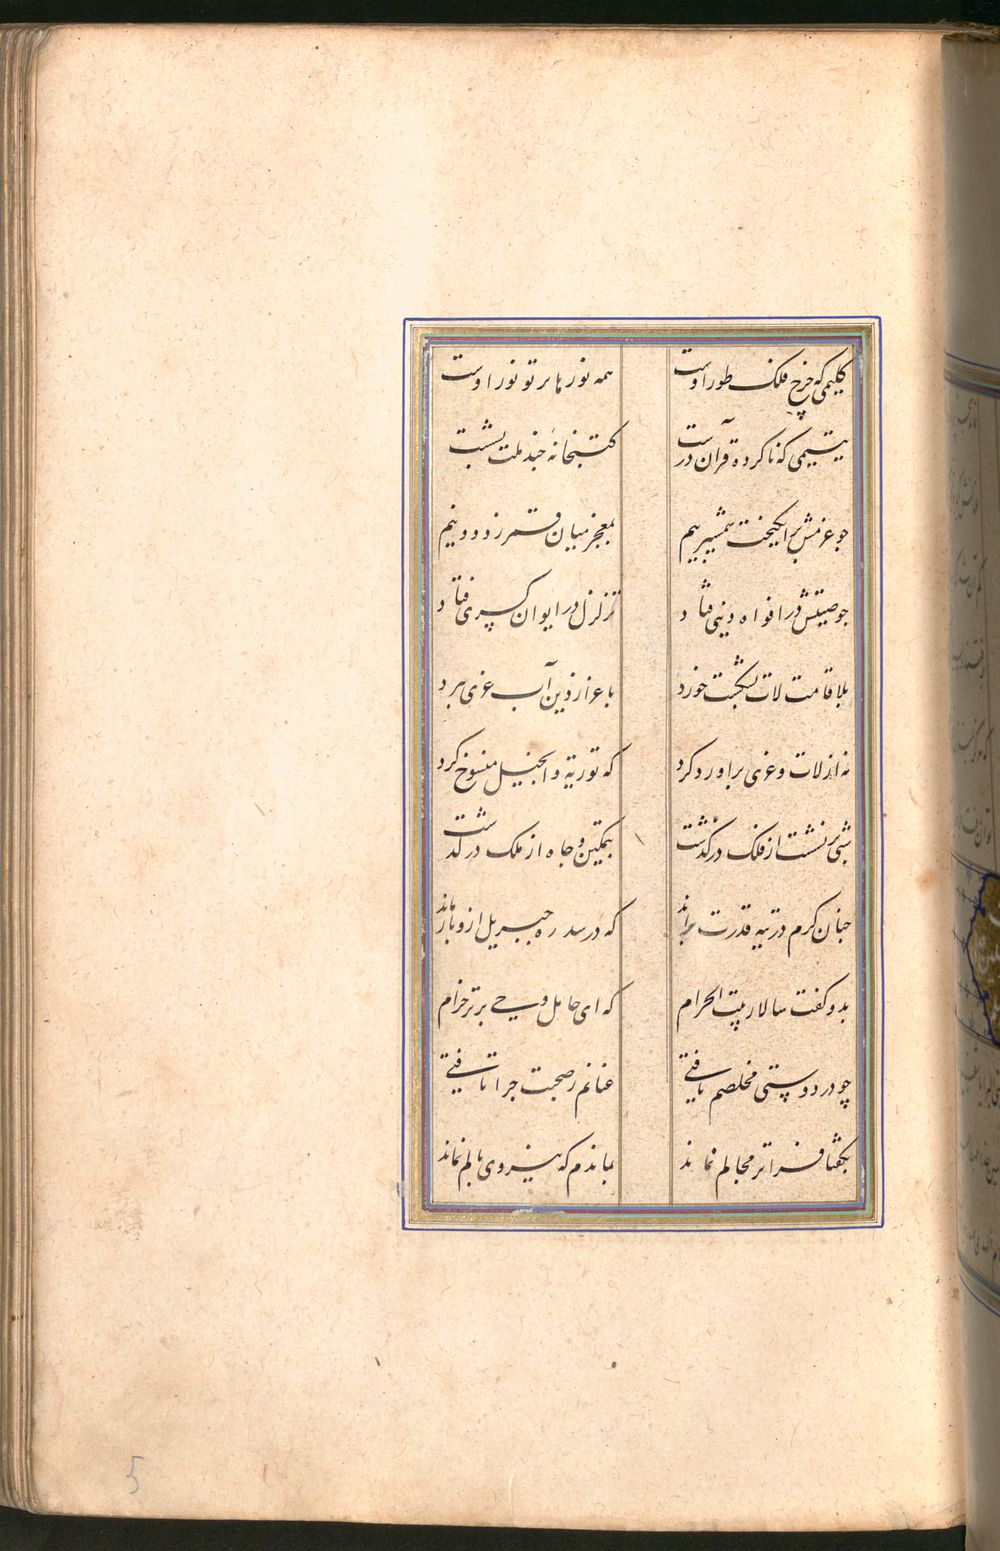 کلیمی که چرخ فلک طور اوست همه نورها پرتو نور اوست
یتیمی که ناکرده قرآن درست کتبخانهٔ چند ملت بشست
چو عزمش برانگیخت شمشیر بیم بمعجز میان قمر زد دو نیم
چو صیتش در افواه دنیی فتاد تزلزل در ایوان کسری فتاد
بلا قامت لات بشکست خورد باعزاز دین آب عزی ببرد
نه از لات و عزی براورد کرد که توریة و انجیل منسوخ کرد
شبی برنشست از فلک درگذشت بتمکین و جاه از ملک درگذشت
چنان گرم در تیه قدرت براند که در سدره جبریل ازو بازماند
بدو گفت سالار بیت الحرام که ای حامل وحی برتر خرام
چو در دوستی مخلصم یافتی عنانم ز صحبت چرا تافتی
بگفتا فراتر مجالم نماند بماندم که نیروی بالم نماند
5